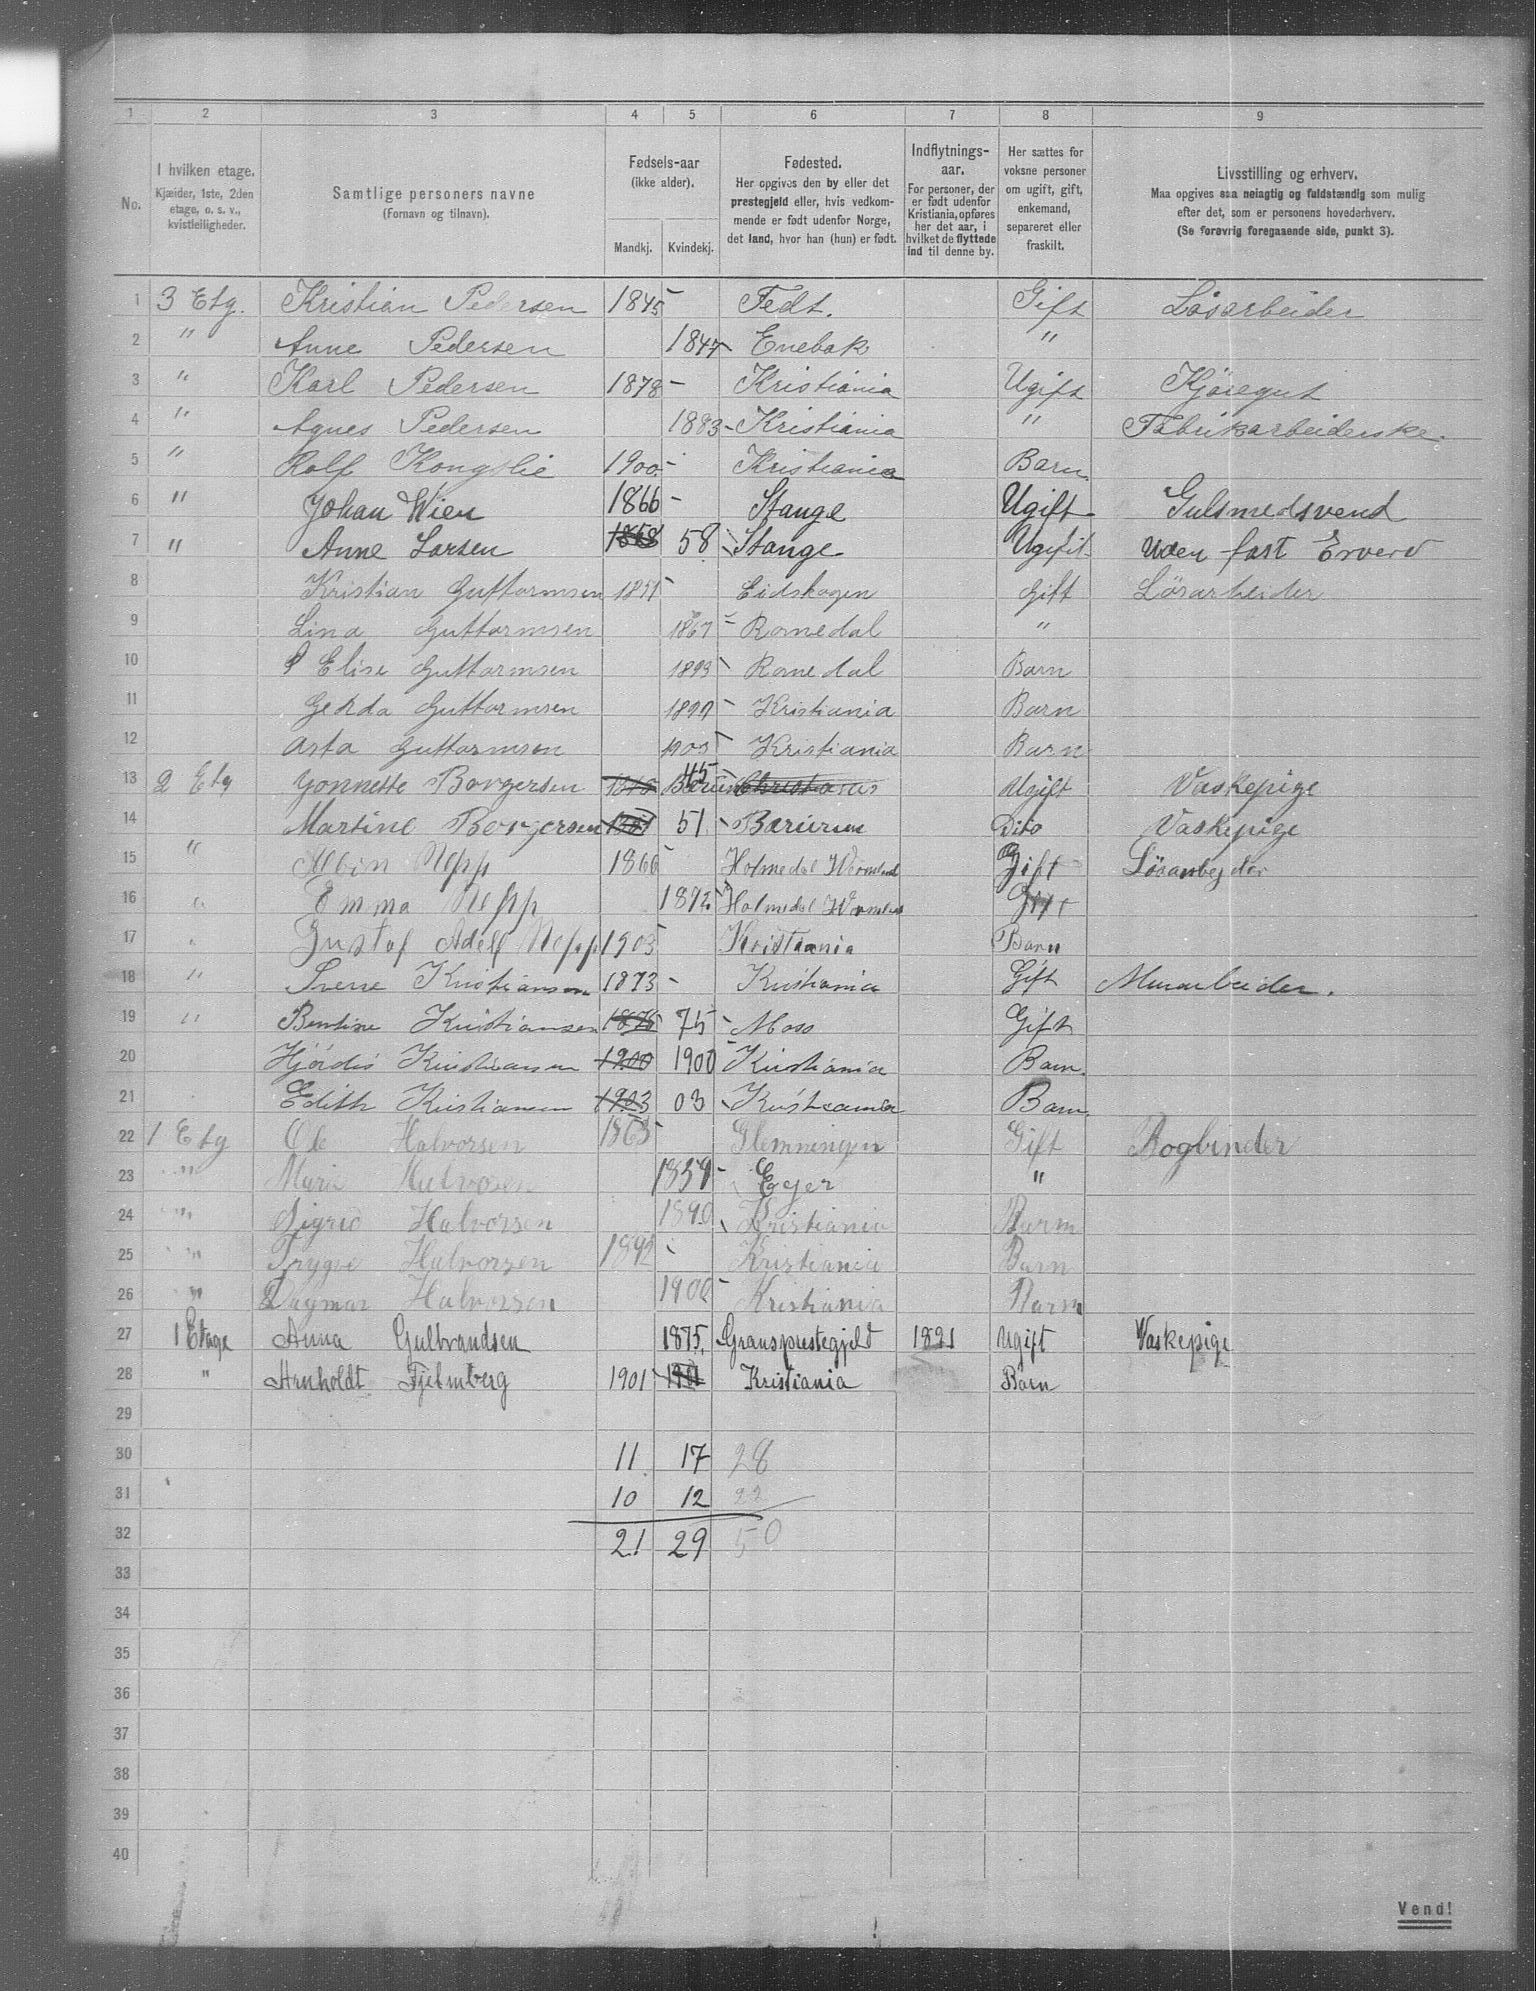 1 2 3 4 5 6 7 8 9
No.
I hvilken etage.
Kjælder, 1ste, 2den
etage, o. s. v.,
kvistleiligheder.
Samtlige personers navne
(Fornavn og tilnavn).
Fødsels-aar
(ikke alder).
Mandkj. Kvindekj.
Fødested.
Her opgives den by eller det
prestegjeld eller, hvis vedkom-
mende er født udenfor Norge,
det land, hvor han (hun) er født.
Indflytnings-
aar.
For personer, der
er født udenfor
Kristiania, opføres
her det aar, i
hvilket de flyttede
ind til denne by.
Her sættes for
voksne personer
om ugift, gift,
enkemand,
separeret eller
fraskilt.
Livsstilling og erhverv.
Maa opgives saa nøiagtig og fuldstændig som mulig
efter det, som er personens hovederhverv.
(Se forøvrig foregaaende side, punkt 3).
1 3 Etg. Kristian Pedersen 1845 Fedt. Gift Løsarbeider
2 " Anne Pedersen 1847 Enebak "
3 " Karl Pedersen 1878 Kristiania Ugift Kjøregut
4 " Agnes Pedersen 1883 Kristiania " Fabrikarbeiderske.
5 " Rolf Kongslie 1900 Kristiania Barn
6 " Johan Wien 1866 Stange Ugift Gulsmedsvend
7 " Anne Larsen 1858 58 Stange Ugift Uden fast Erverv
8 Kristian Guttormsen 1851 Eidskogen Gift Løsarbeider
9 Lina Guttormsen 1867 Romedal "
10 Elise Guttormsen 1893 Romedal Barn
11 Gerda Guttormsen 1899 Kristiania Barn
12 Asta Guttormsen Kristiania Barn
13 2 Etg Borgersen 45 Ugift Vaskepige
14 Martine Borgersen 51 Bærum Dito Vaskepige
15 " Albin 1866 Holmedal Gift Løsarbejder
16 " Emma 1892 Holmedal Gift
17 " Gustaf Adolf 1903 Kristiania Barn
18 " Kristiansen 1873 Kristiania Gift Murarbeider.
19 " Bentine Kristiansen 1875 75 Moss Gift
20 Hjördis Kristiansen 1900 1900 Kristiania Barn.
21 Edith Kristiansen 1903 03 Kristiania Barn.
22 1 Etg Ole Halvorsen 1863 Glemmingen Gift Bogbinder
23 " Marie Halvorsen 1859 Eger "
24 " Sigrid Halvorsen 1890 Kristiania Barn
25 " Trygve Halvorsen 1892 Kristiania Barn
26 " Dagmar Halvorsen 1900 Kristiania Barn
27 1 Etage Anna Gulbrandsen 1875 Gransprestegjeld 1891 Ugift Vaskepige
28 " Arnholdt Fjelmberg 1901 1901 Kristiania Barn
29
30 11 17 28
31 10 12 22
32 21 29 50
33
34
35
36
37
38
39
40
Vend!